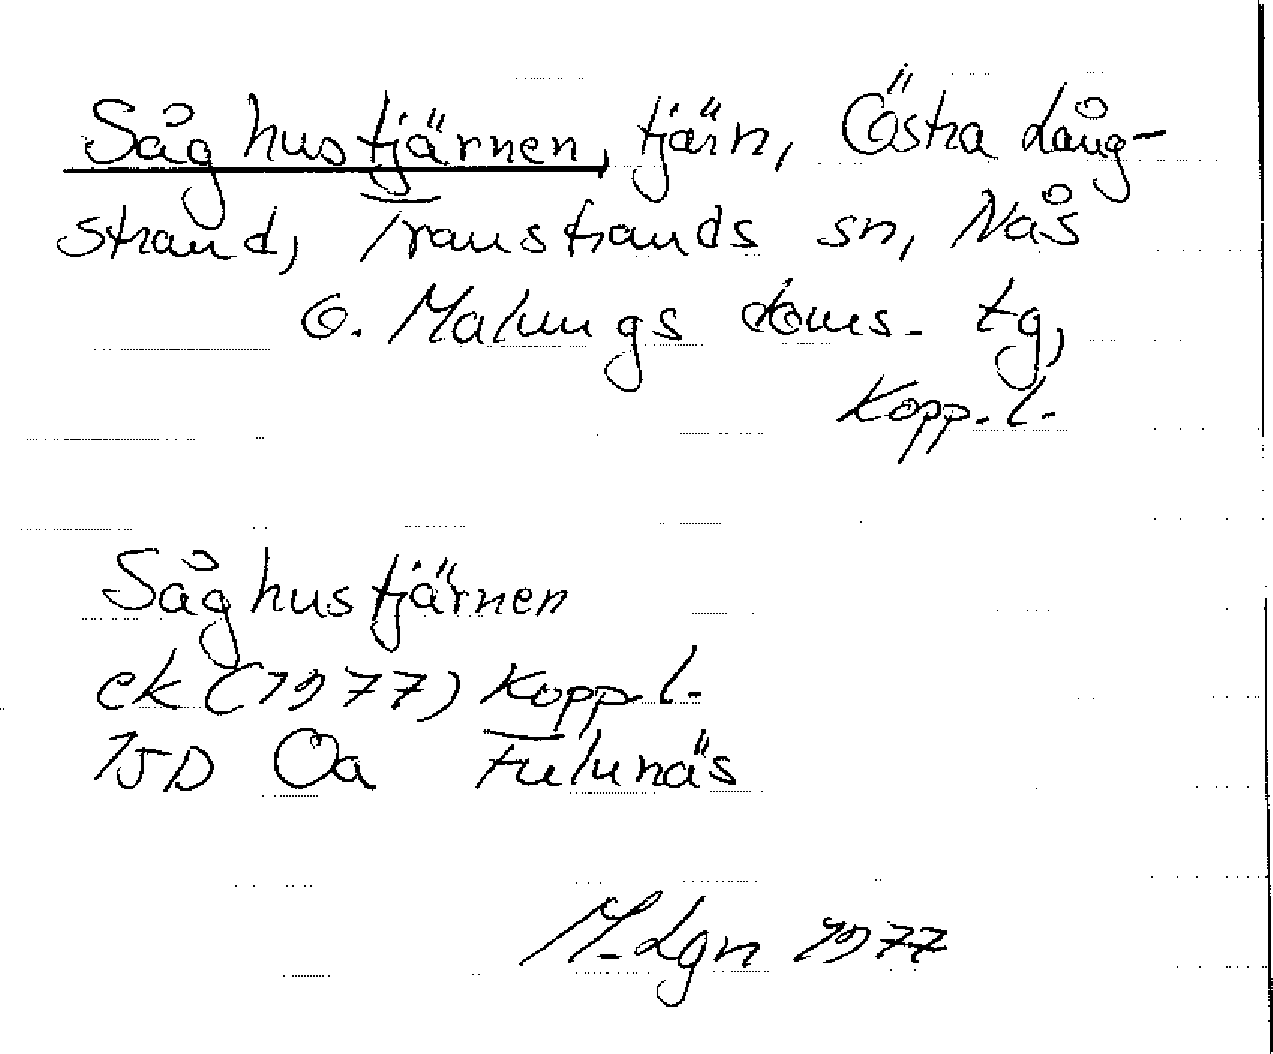 Såghustjärnen, tjärn, Östra Lång-
strand, Transtrands sn, Nås
o. Malungs doms. tg,
Kopp. l.
Såghustjärnen
ek (1977) Kopp. l.
15D 0a Fulunäs
M. Lgn 1977